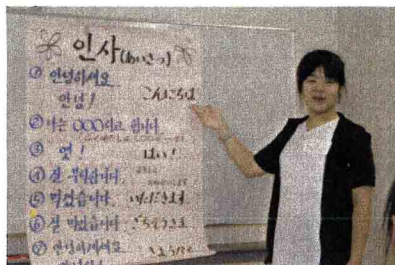 인사 (あいさつ)
① 안녕하세요
안녕! こんにちは
② 나는 OOO라고 합니다
③ 옛! はい!
④ 잘 부탁합니다
⑤ 먹겠습니다. いただきます
⑥ 잘 먹었습니다. ごちそうさま
⑦ 안녕히계세요 さようなら